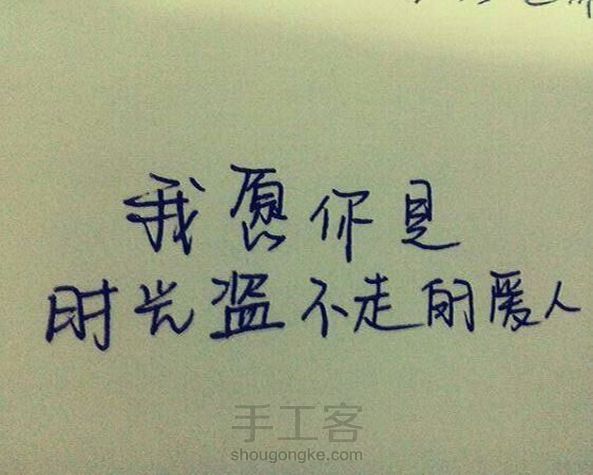 我愿你是
时光盗不走的爱人
手工客
shougongke.com